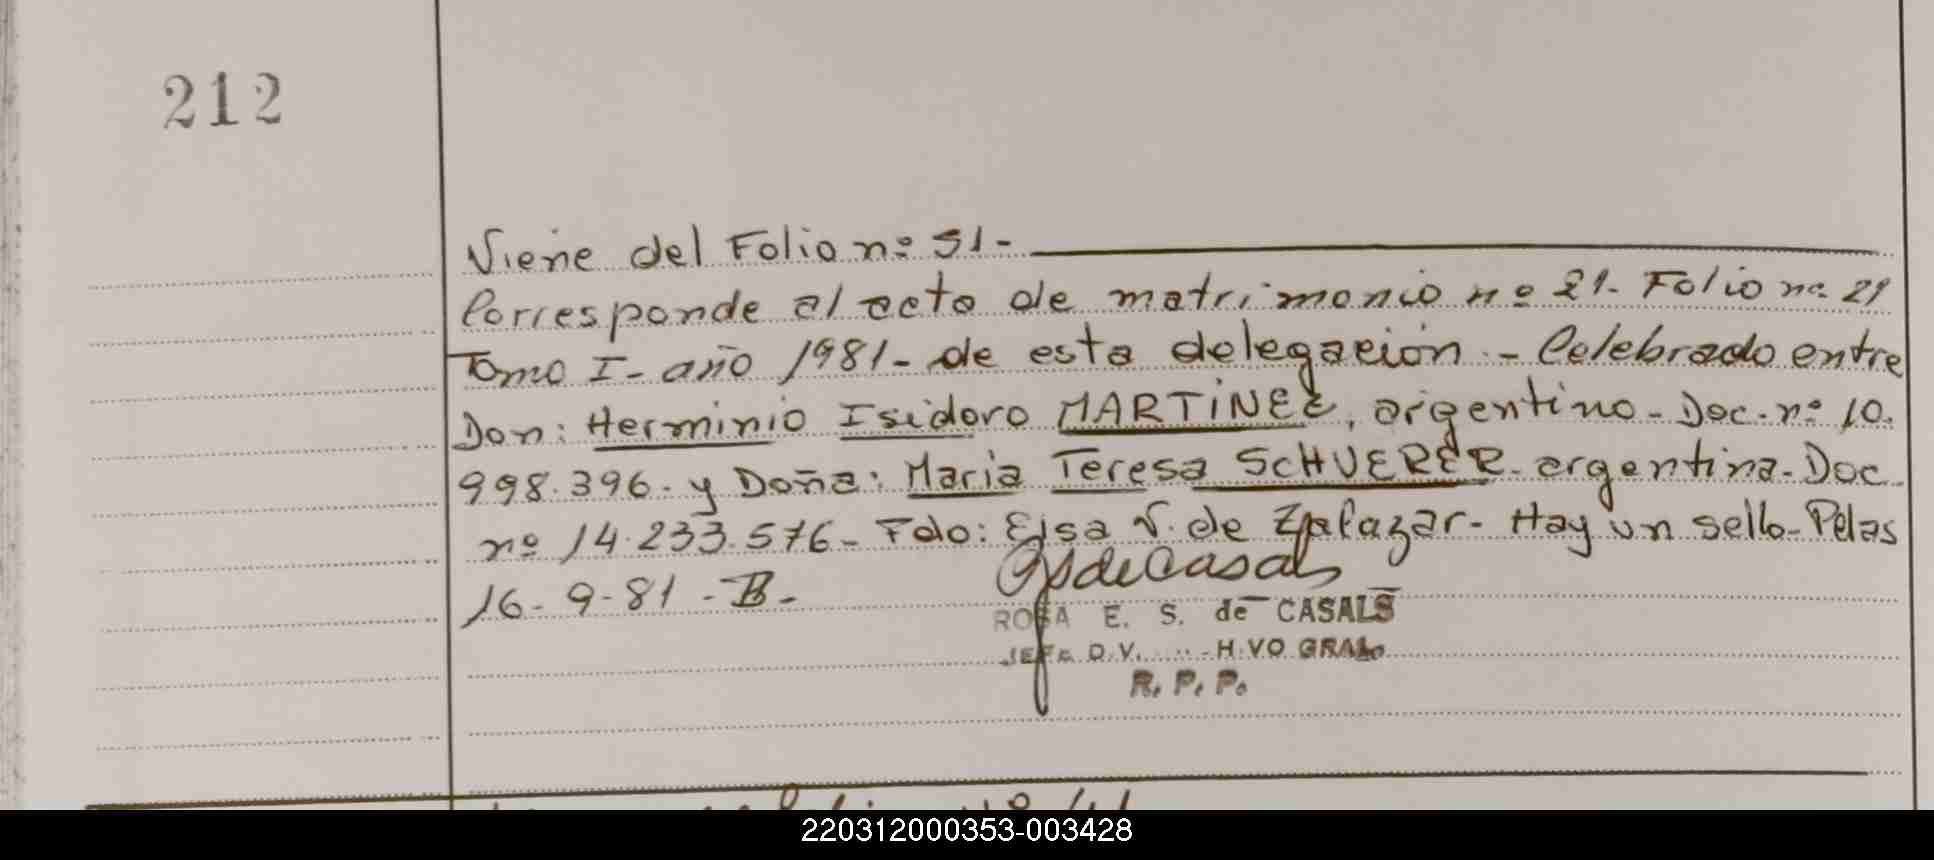 212
Viene del Folio nº 51-
Corresponde al acto de matrimonio nº 21- Folio nº 21
Tomo I- año 1981- de esta delegación.- Celebrado entre
Don: Herminio Isidoro MARTINEZ, argentino- Doc. nº 10.
998.396- y Doña: Maria Teresa SCHUERER- argentina- Doc.
nº 14.233.576- Fdo: Elsa V. de Zalazar- Hay un sello- Pdas
16-9-81-B-
ROSA E. S. de CASALS
JEFE DIV. H VO GRAL.
R. P. P.
220312000353-003428